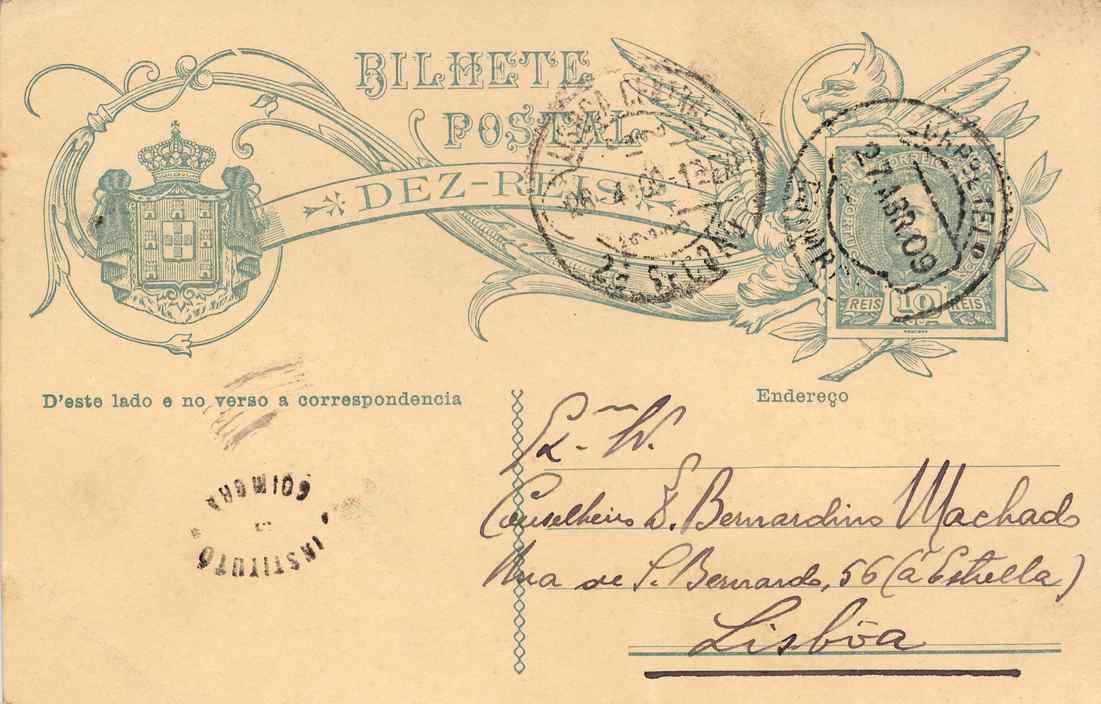 BILHETE
POSTAL
DEZ-REIS
CENTRAL
2ª SECÇÃO
CORREIOS
27 ABR. 09
REIS 10 REIS
D'este lado e no verso a correspondencia
Endereço
COIMBRA
INSTITUTO
Ex.mo
Conselheiro D. Bernardino Machado
Rua de S. Bernardo, 56 (á Estrella)
Lisbôa